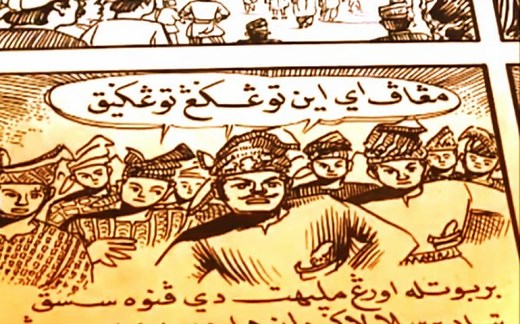 مڠاڤ اي اين توڠݢڠ توڠݢيق
بربوتله اورڠ مليهت دي ڤنوه سسق